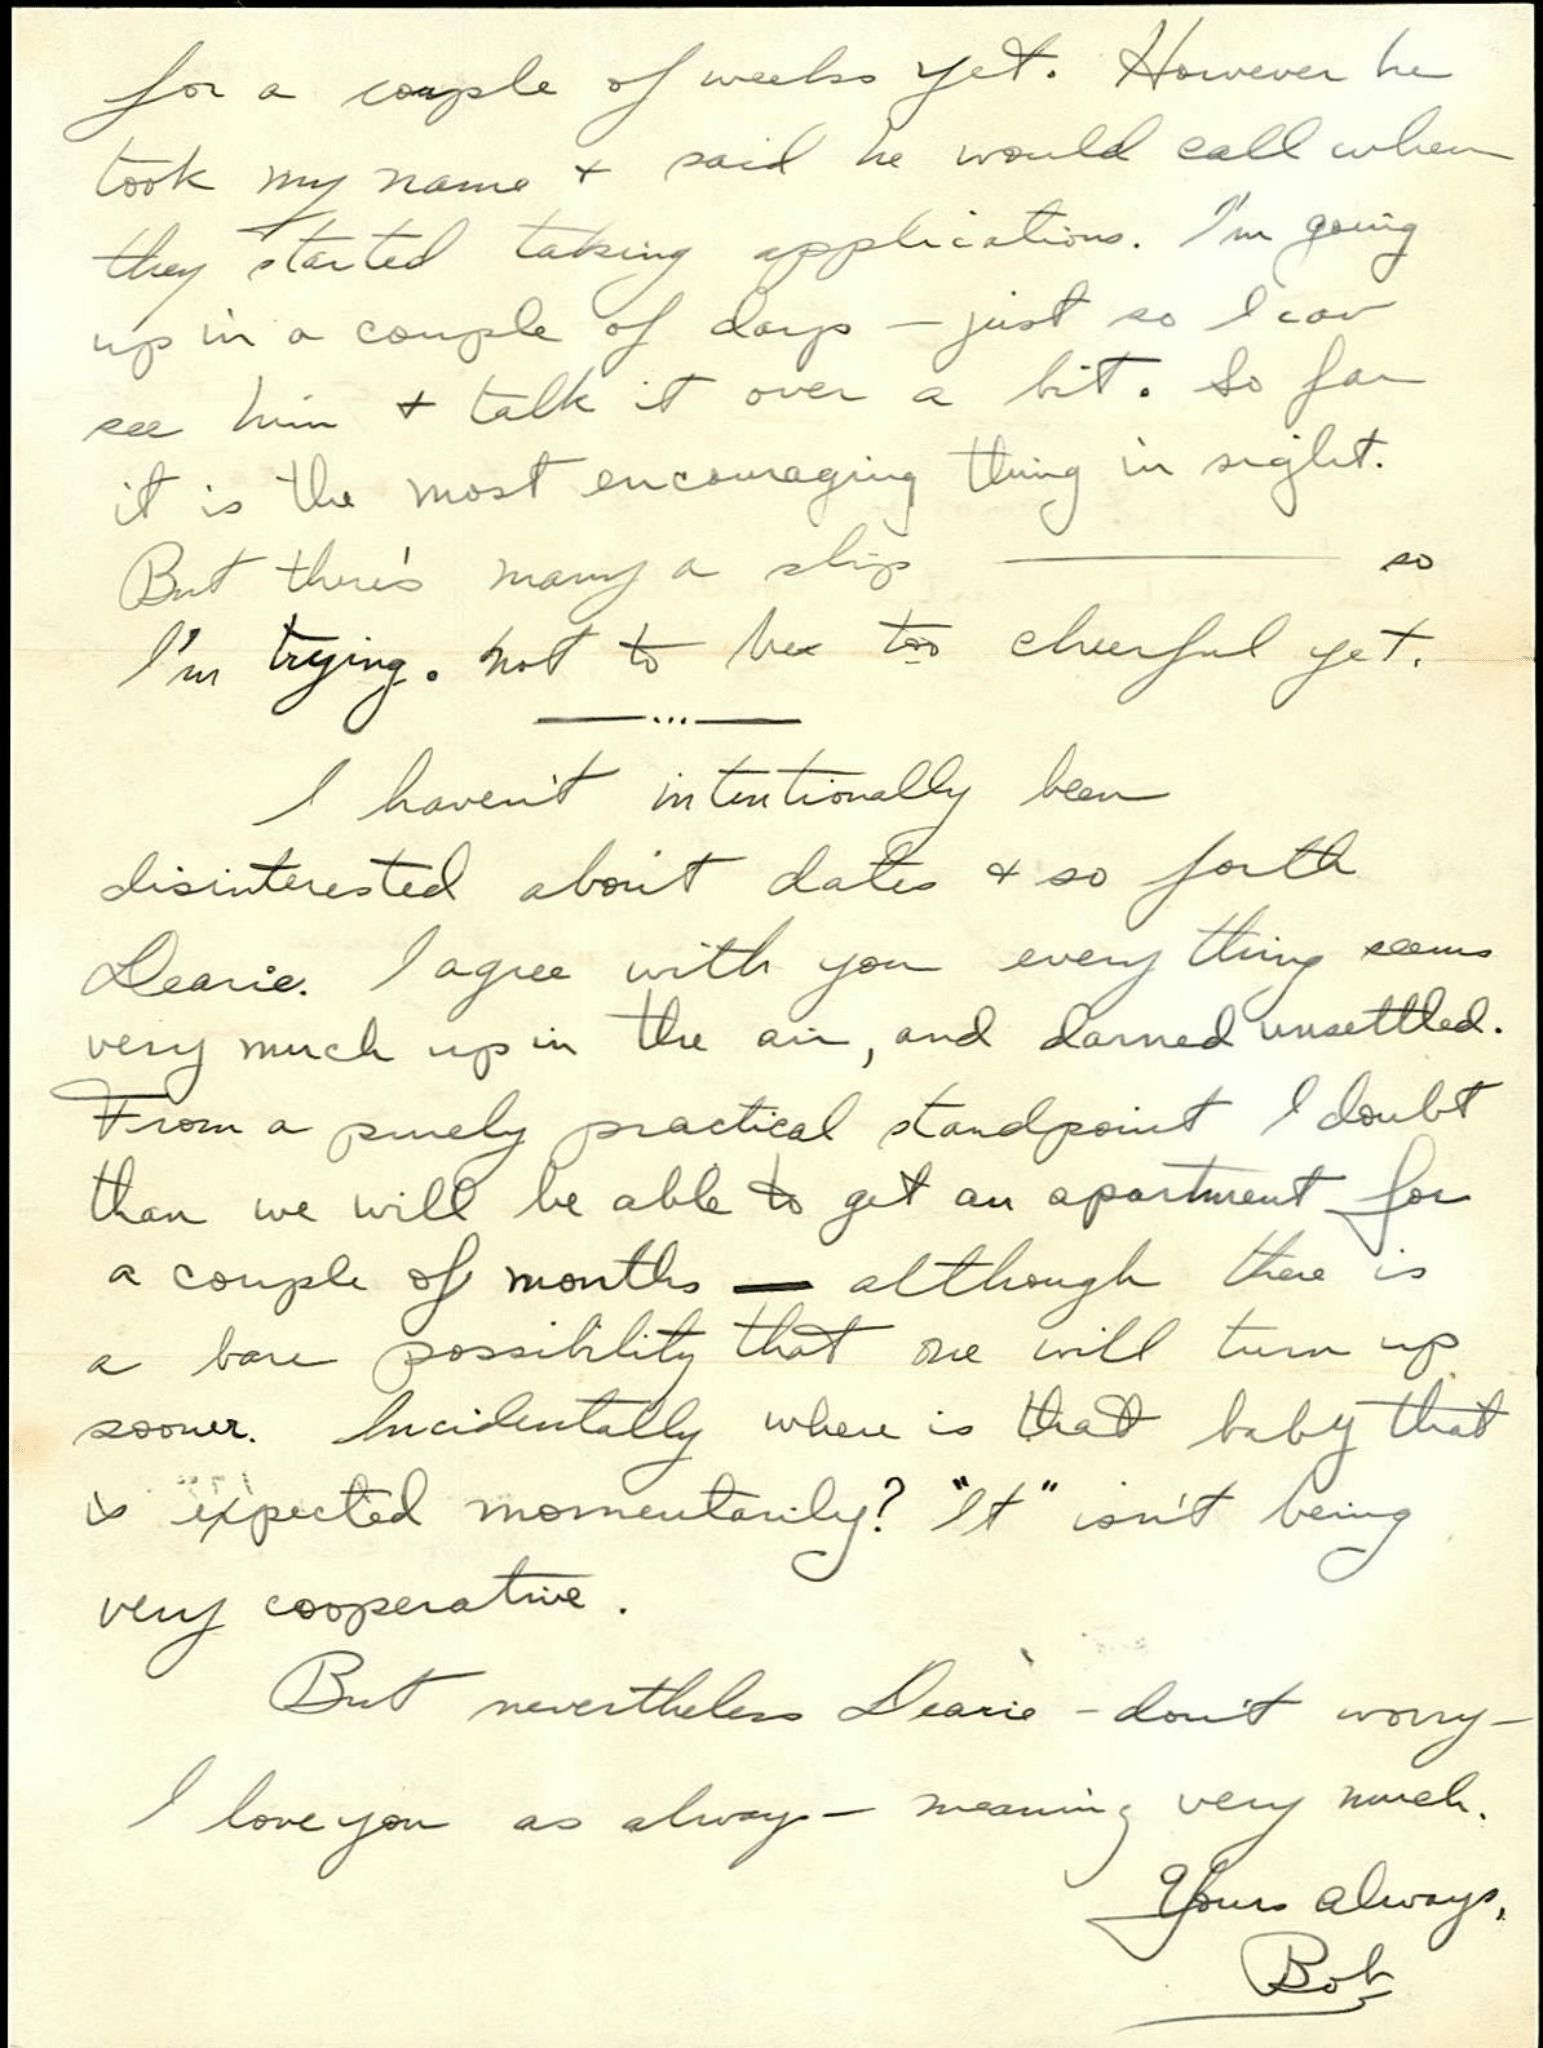 for a couple of weeks yet. However he
took my name + said he would call when
they started taking applications. I'm going
up in a couple of days — just so I can
see him + talk it over a bit. So far
it is the most encouraging thing in sight.
But there's many a slip ——— so
I'm trying. not to be too cheerful yet.
—...—
I haven't intentionally been
disinterested about dates + so forth
Dearie. I agree with you every thing seems
very much up in the air, and darned unsettled.
From a purely practical standpoint I doubt
than we will be able to get an apartment for
a couple of months — although there is
a bare possibility that one will turn up
sooner. Incidentally where is that baby that
is expected momentarily? "It" isn't being
very cooperative.
But nevertheless Dearie - don't worry —
I love you as always — meaning very much.
Yours always,
Bob